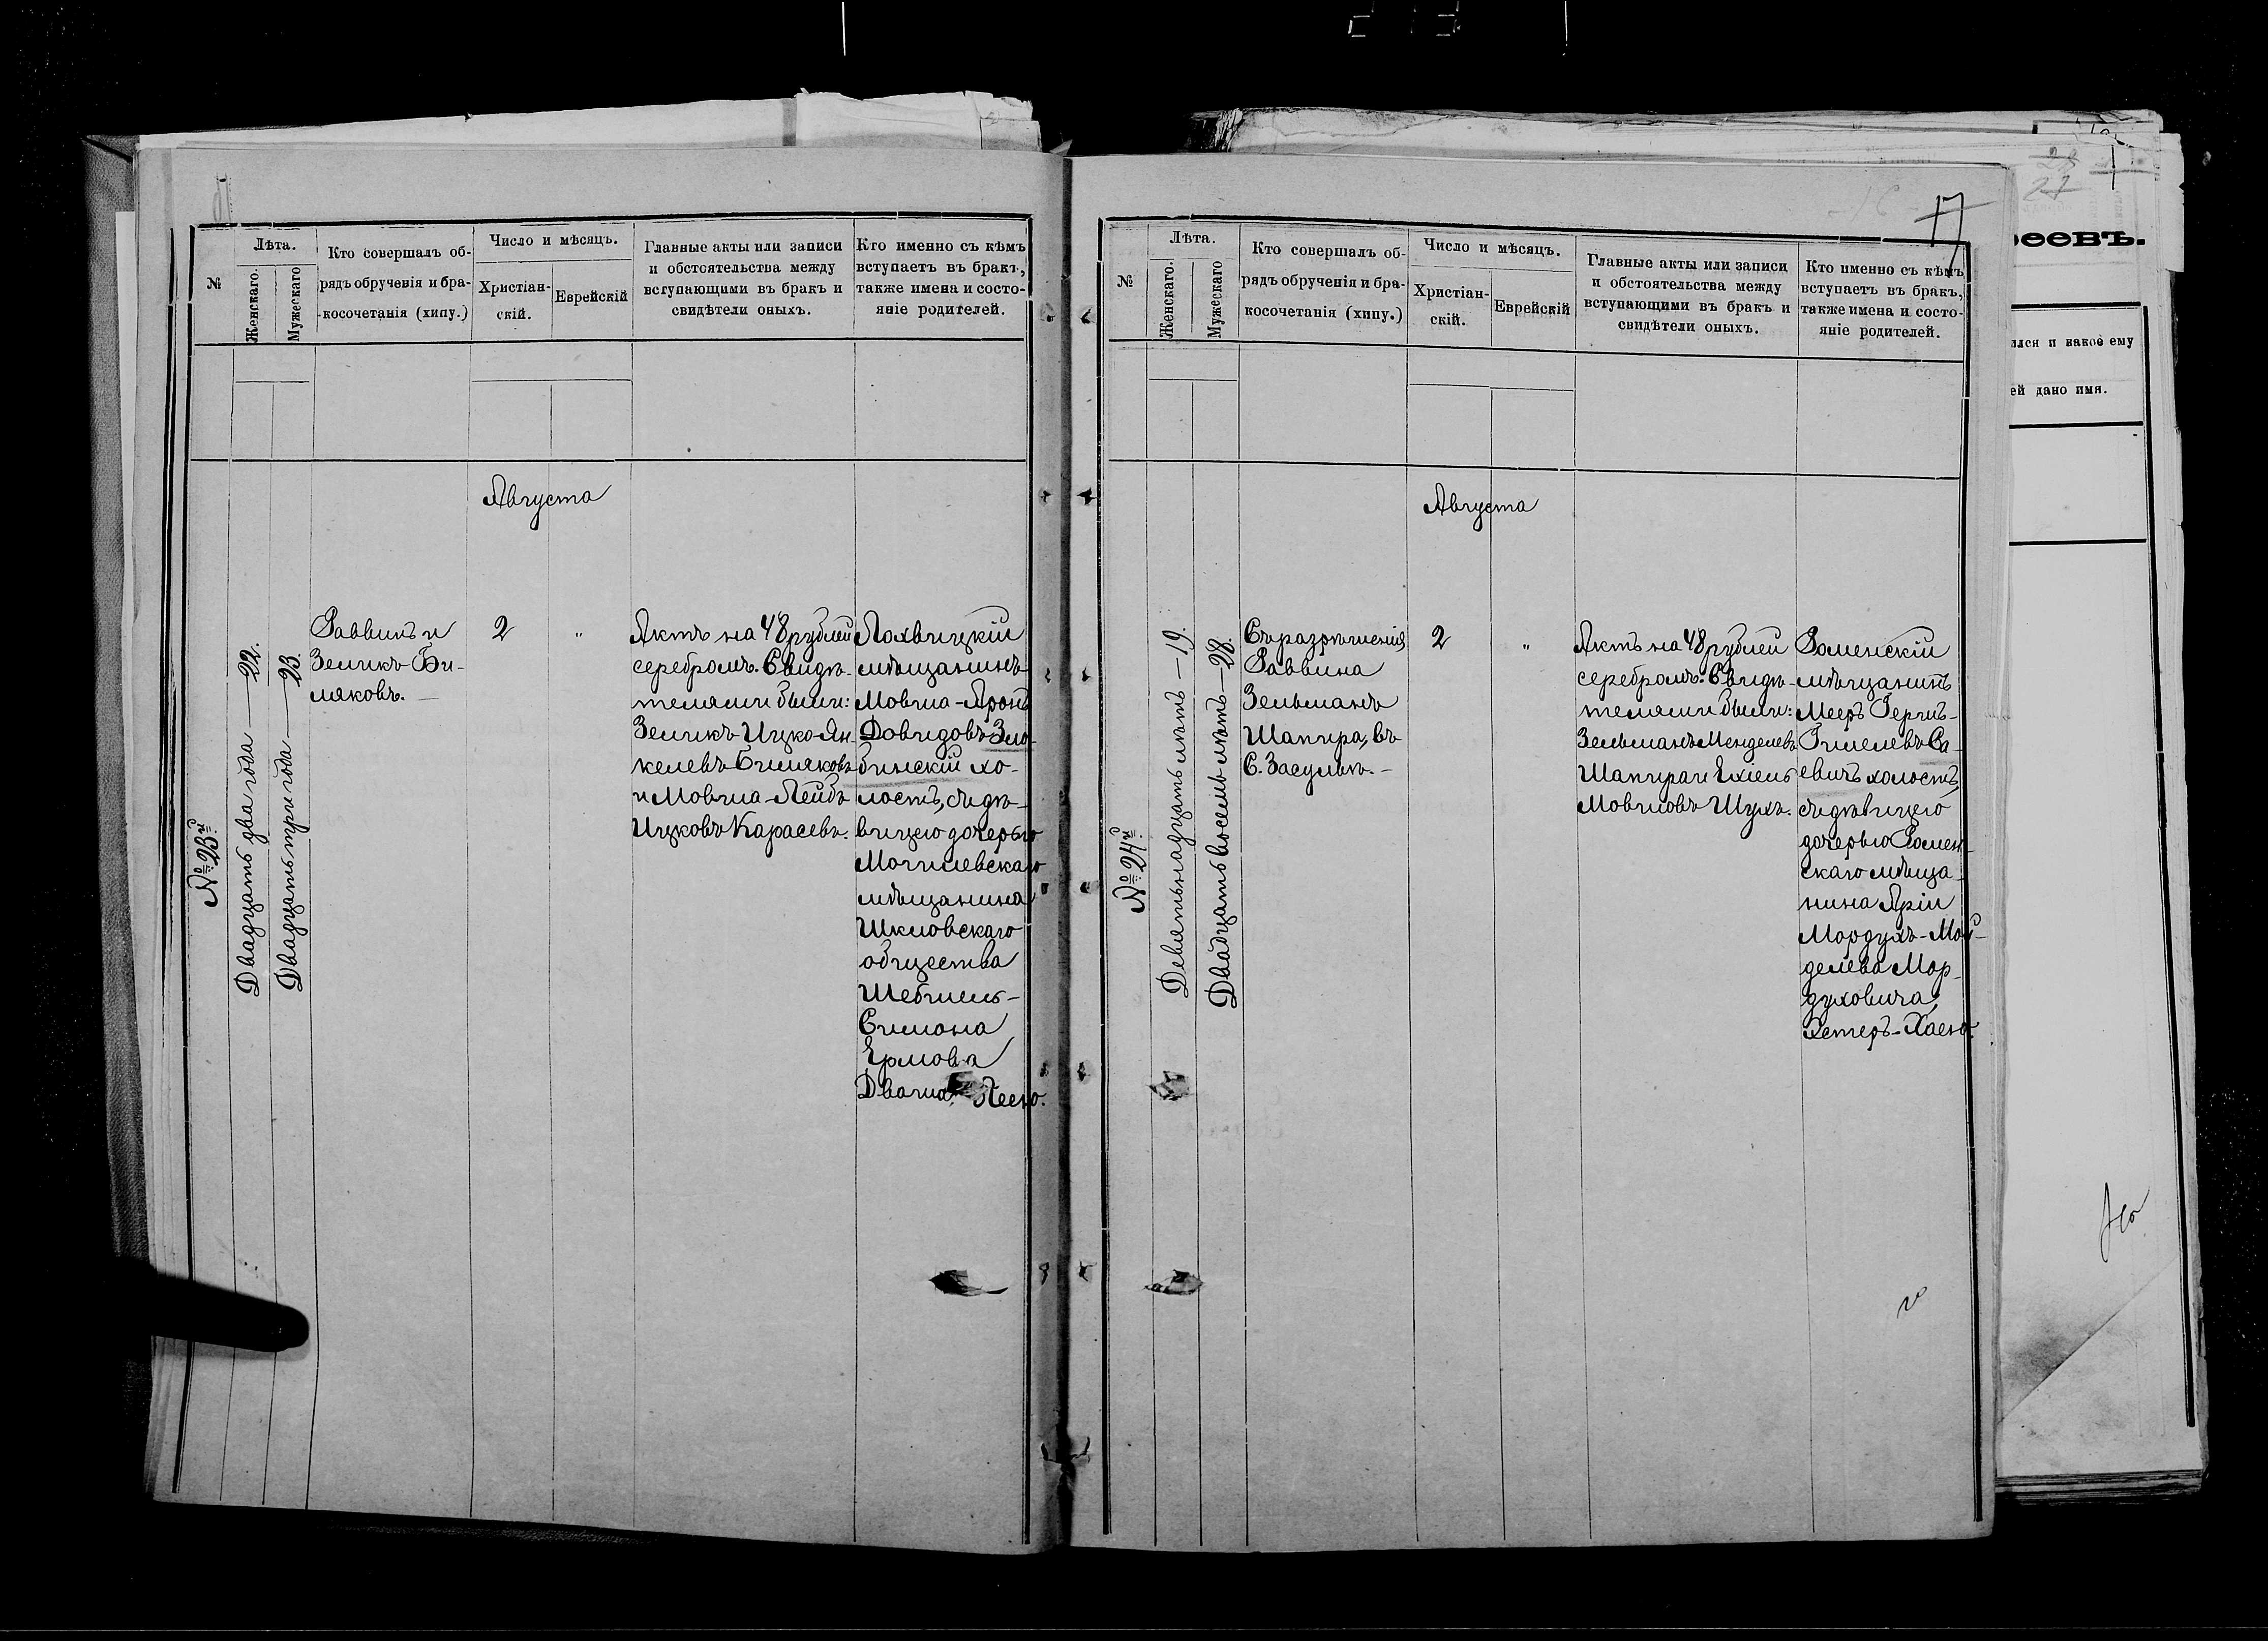 №
Лѣта.
Женскаго.
Мужескаго
Кто совершалъ об-
рядъ обрученія и бра-
косочетанія (хипу.)
Число и мѣсяцъ.
Христіан-
скій.
Еврейскій
Главные акты или записи
и обстоятельства между
вступающими въ бракъ и
свидѣтели оныхъ.
Кто именно съ кѣмъ
вступаетъ въ бракъ,
также имена и состо-
яніе родителей.
Августа
№ 23й
Двадцать два года — 22.
Двадцать три года — 23.
Раввинъ и
Зеликъ Би-
ляковъ. —
2
"
Актъ на 48 рублей
серебромъ. Свидѣ-
телями были:
Зеликъ Ицко-Ян-
келевъ Биляковъ
и Мовша-Лейбъ
Ицковъ Карасевъ.
Лохвицкій
мѣщанинъ
Мовша-Аронъ
Довидовъ Зло-
бинскій хо-
лостъ, съ дѣ-
вицею дочерью
Могилевскаго
мѣщанина
Шкловскаго
общества
Шебшель-
Симона
Ермова
Двашa Леею.
17
№
Лѣта.
Женскаго.
Мужескаго
Кто совершалъ об-
рядъ обрученія и бра-
косочетанія (хипу.)
Число и мѣсяцъ.
Христіан-
скій.
Еврейскій
Главные акты или записи
и обстоятельства между
вступающими въ бракъ и
свидѣтели оныхъ.
Кто именно съ кѣмъ
вступаетъ въ бракъ,
также имена и состо-
яніе родителей.
Августа
№ 24й
Девятьнадцать лѣтъ — 19.
Двадцать восемь лѣтъ — 28.
Съ разрѣшенія
Раввина
Зельманъ
Шапира, въ
С. Засульѣ. —
2
"
Актъ на 48 рублей
серебромъ. Свидѣ-
телями были:
Зельманъ Менделевъ
Шапира и Ехіель
Мовшовъ Шухъ.
Роменскій
мѣщанинъ
Мееръ Герцъ-
Гилелевъ Са-
евичъ холостъ,
съ дѣвицею
дочерью Ромен-
скаго мѣща-
нина Аріи
Мордухъ-Мен-
делева Мор-
духовича,
Эстеръ-Хаею.
27
еевъ.
ился и какое ему
ей дано имя.